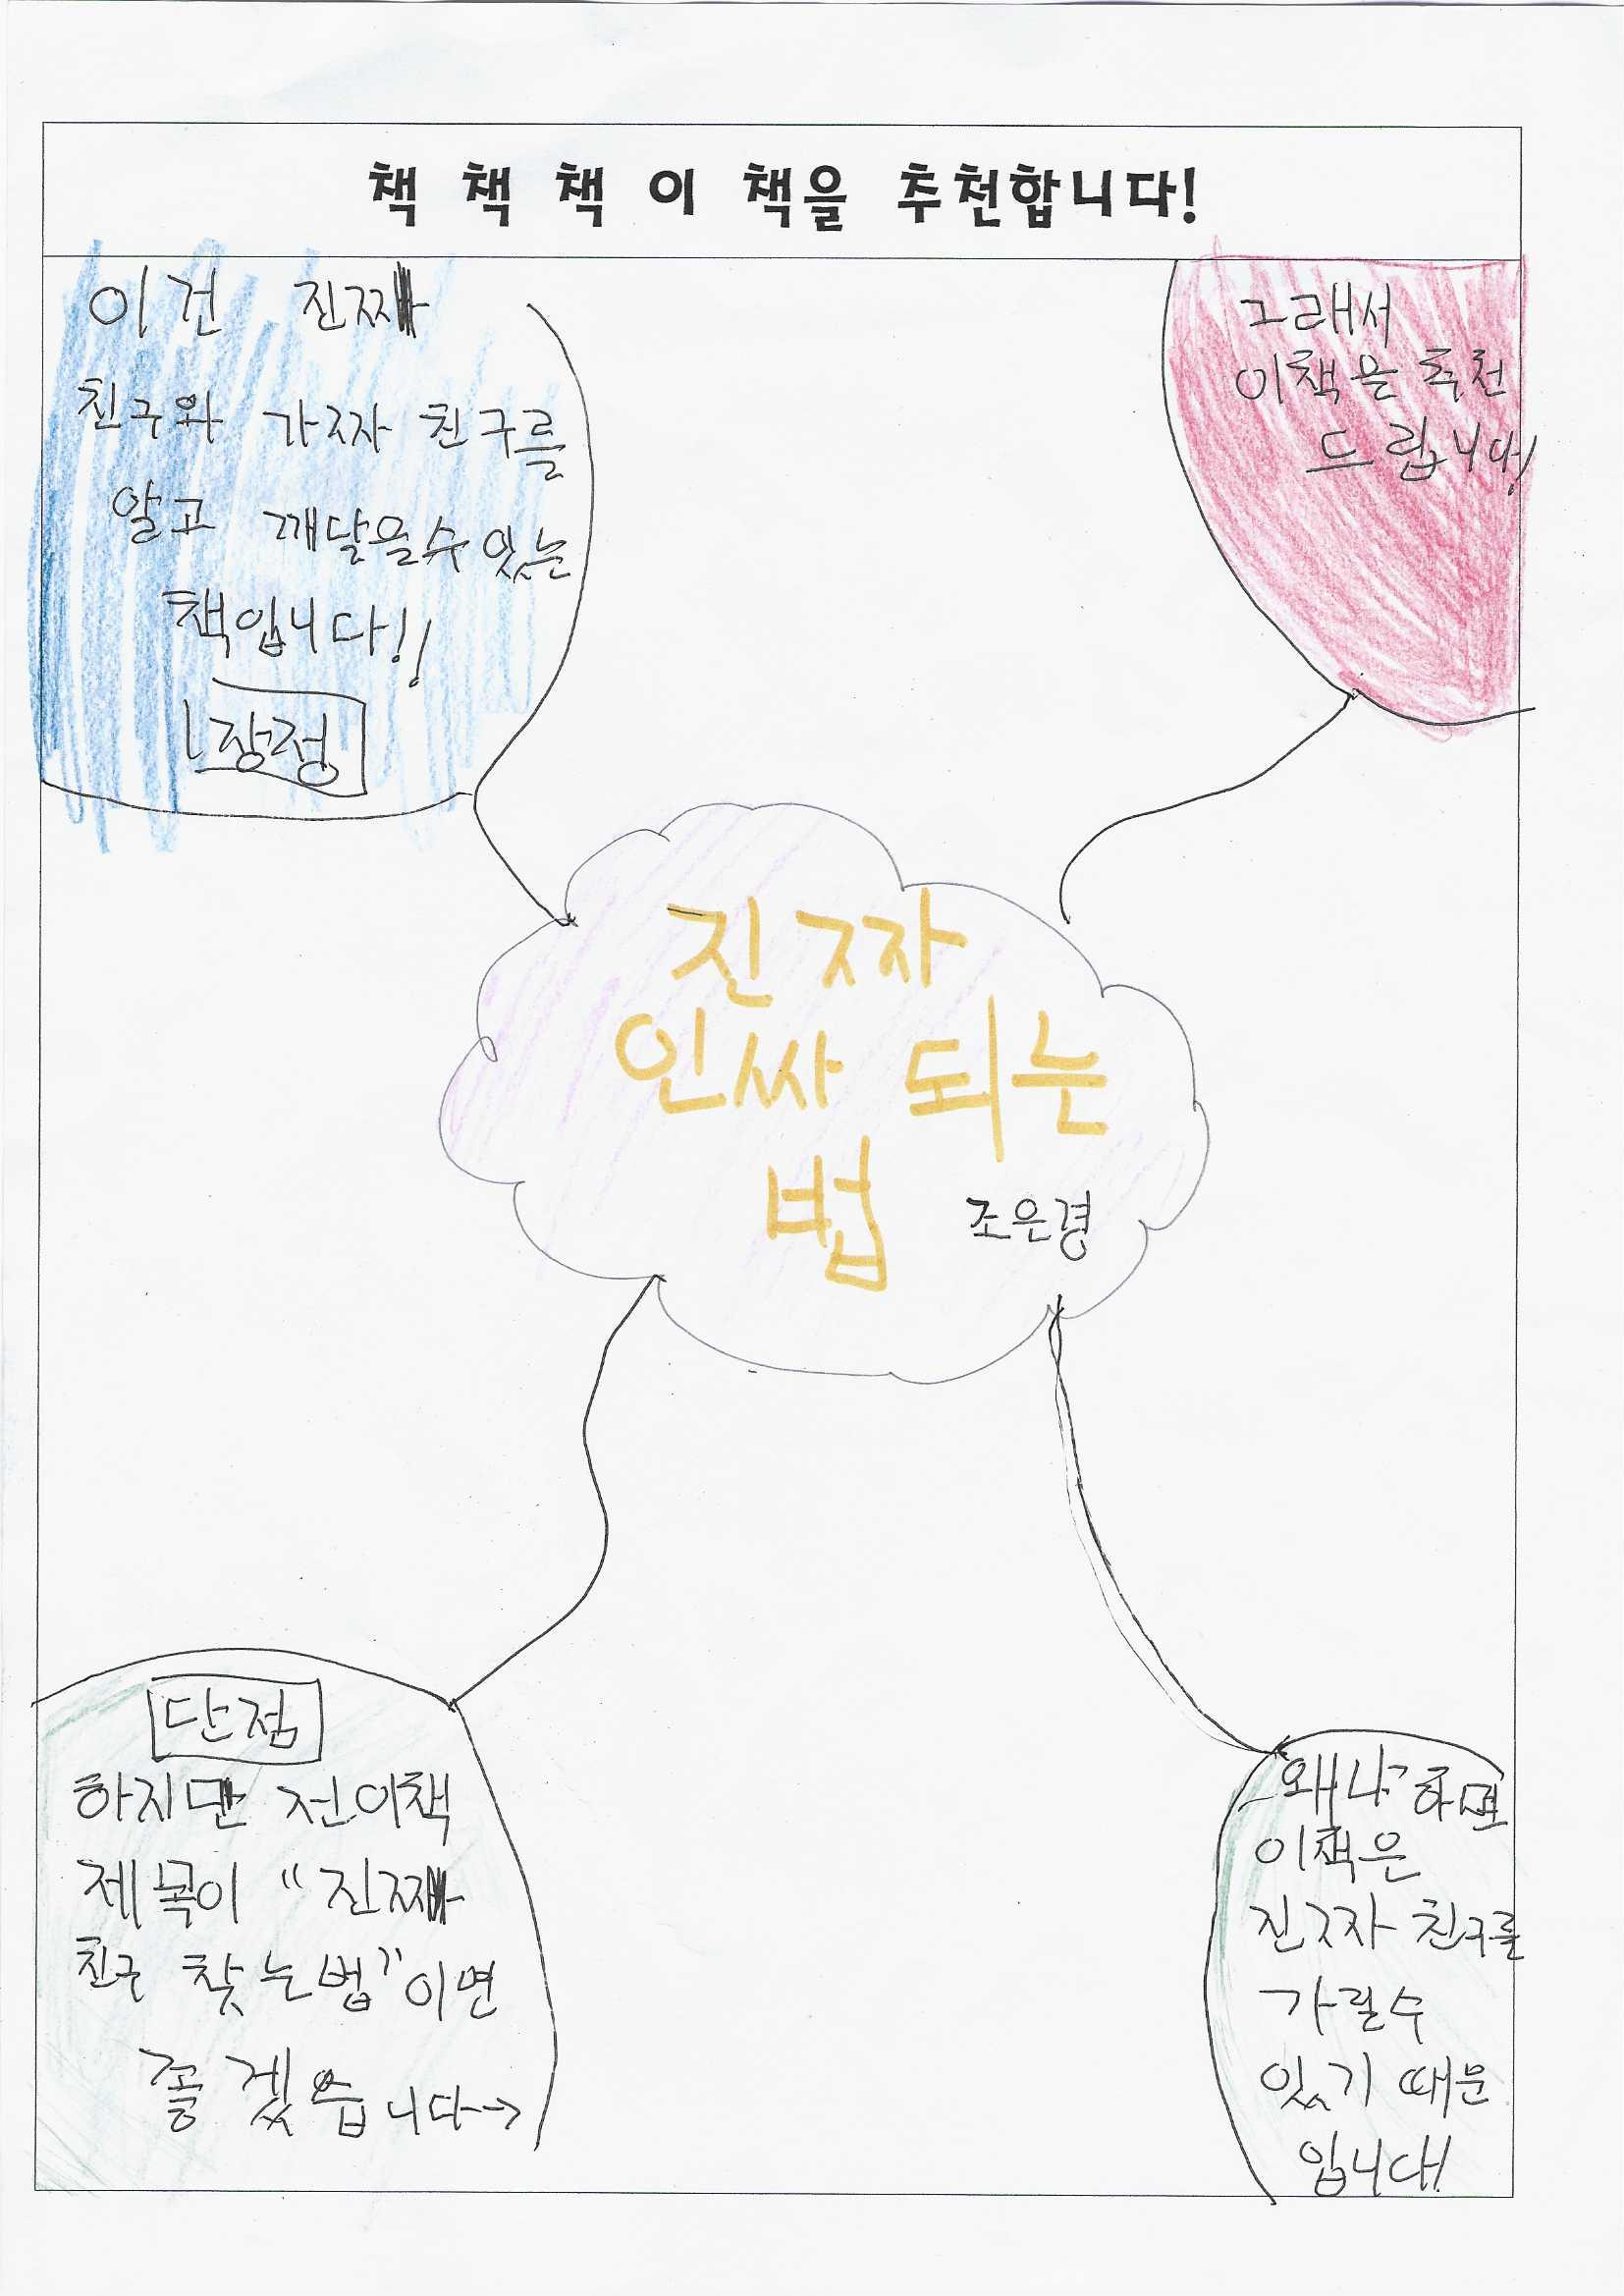 책 책 책 이 책을 추천합니다!
이건 진짜
친구와 가짜 친구를
알고 깨달을수 있는
책입니다!!
장점
그래서
이책을 추천
드립니다!
진짜
인싸 되는
법
조은경
단점
하지만 전이책
제목이 "진짜
친구 찾는법"이면
좋겠습니다→
왜냐하면
이책은
진짜 친구를
가릴수
있기 때문
입니다!